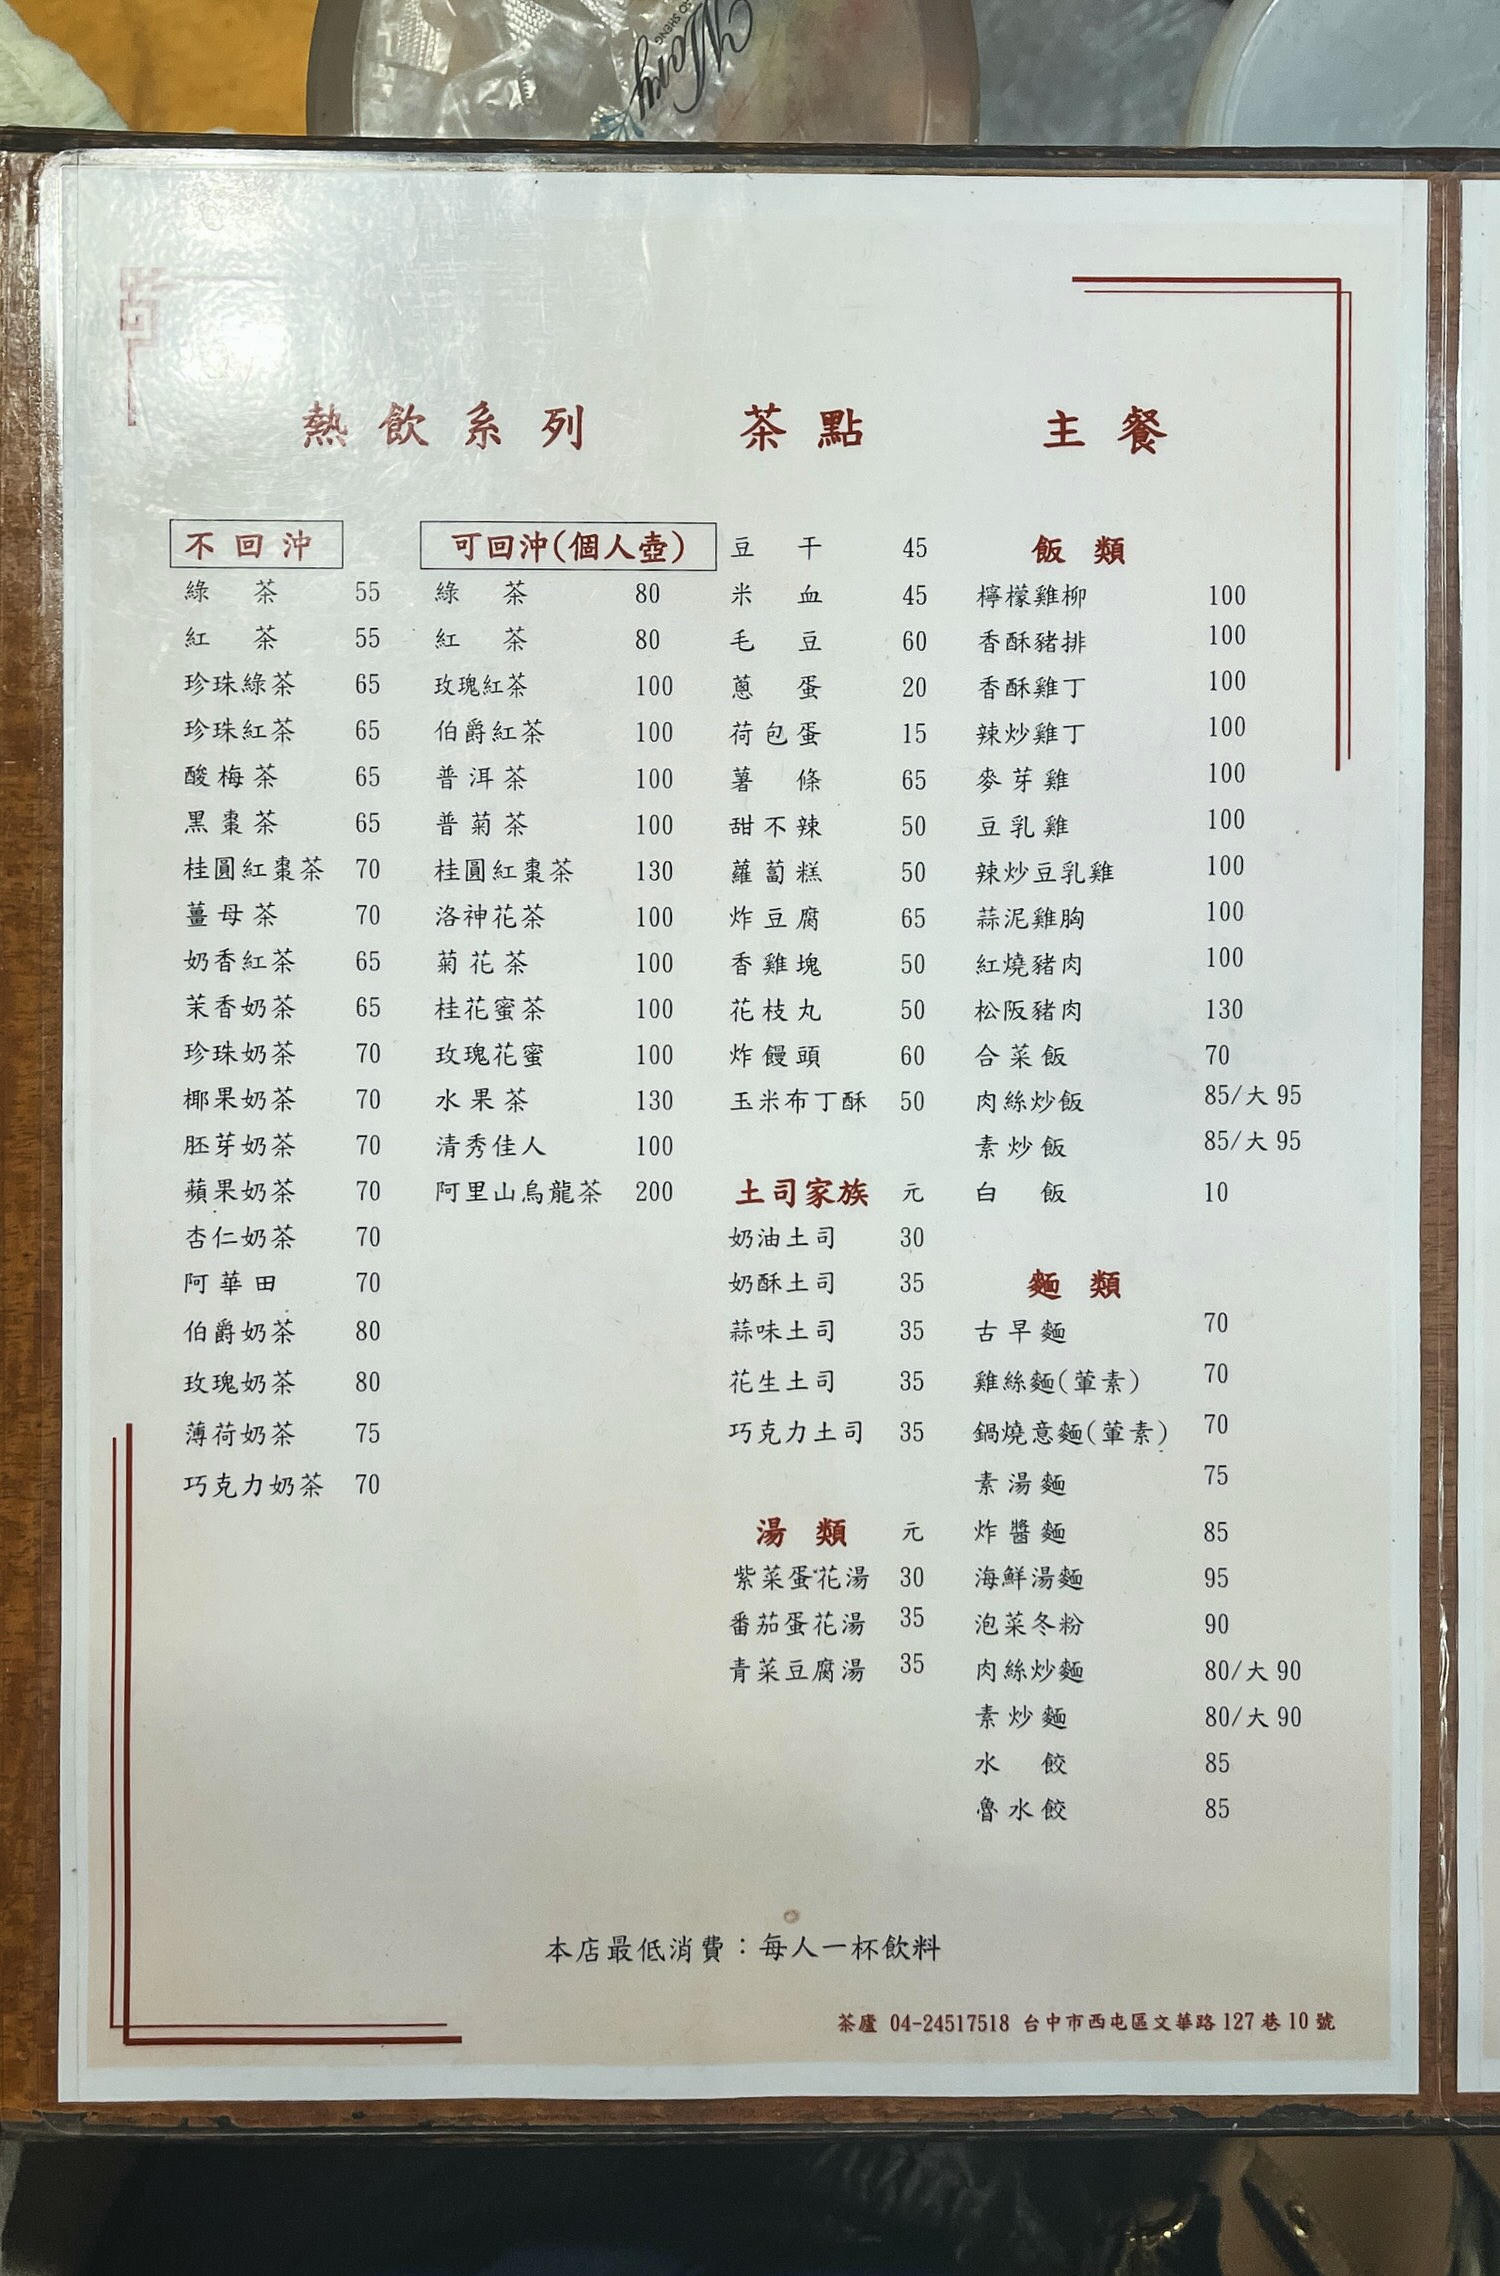 Mory
SHENG
熱飲系列
不回沖
綠茶 55
紅茶 55
珍珠綠茶 65
珍珠紅茶 65
酸梅茶 65
黑棗茶 65
桂圓紅棗茶 70
薑母茶 70
奶香紅茶 65
茉香奶茶 65
珍珠奶茶 70
椰果奶茶 70
胚芽奶茶 70
蘋果奶茶 70
杏仁奶茶 70
阿華田 70
伯爵奶茶 80
玫瑰奶茶 80
薄荷奶茶 75
巧克力奶茶 70
可回沖(個人壺)
綠茶 80
紅茶 80
玫瑰紅茶 100
伯爵紅茶 100
普洱茶 100
普菊茶 100
桂圓紅棗茶 130
洛神花茶 100
菊花茶 100
桂花蜜茶 100
玫瑰花蜜 100
水果茶 130
清秀佳人 100
阿里山烏龍茶 200
茶點
豆干 45
米血 45
毛豆 60
蔥蛋 20
荷包蛋 15
薯條 65
甜不辣 50
蘿蔔糕 50
炸豆腐 65
香雞塊 50
花枝丸 50
炸饅頭 60
玉米布丁酥 50
土司家族 元
奶油土司 30
奶酥土司 35
蒜味土司 35
花生土司 35
巧克力土司 35
湯類 元
紫菜蛋花湯 30
番茄蛋花湯 35
青菜豆腐湯 35
主餐
飯類
檸檬雞柳 100
香酥豬排 100
香酥雞丁 100
辣炒雞丁 100
麥芽雞 100
豆乳雞 100
辣炒豆乳雞 100
蒜泥雞胸 100
紅燒豬肉 100
松阪豬肉 130
合菜飯 70
肉絲炒飯 85/大 95
素炒飯 85/大 95
白飯 10
麵類
古早麵 70
雞絲麵(葷素) 70
鍋燒意麵(葷素) 70
素湯麵 75
炸醬麵 85
海鮮湯麵 95
泡菜冬粉 90
肉絲炒麵 80/大 90
素炒麵 80/大 90
水餃 85
魯水餃 85
本店最低消費：每人一杯飲料
茶廬 04-24517518 台中市西屯區文華路127巷10號